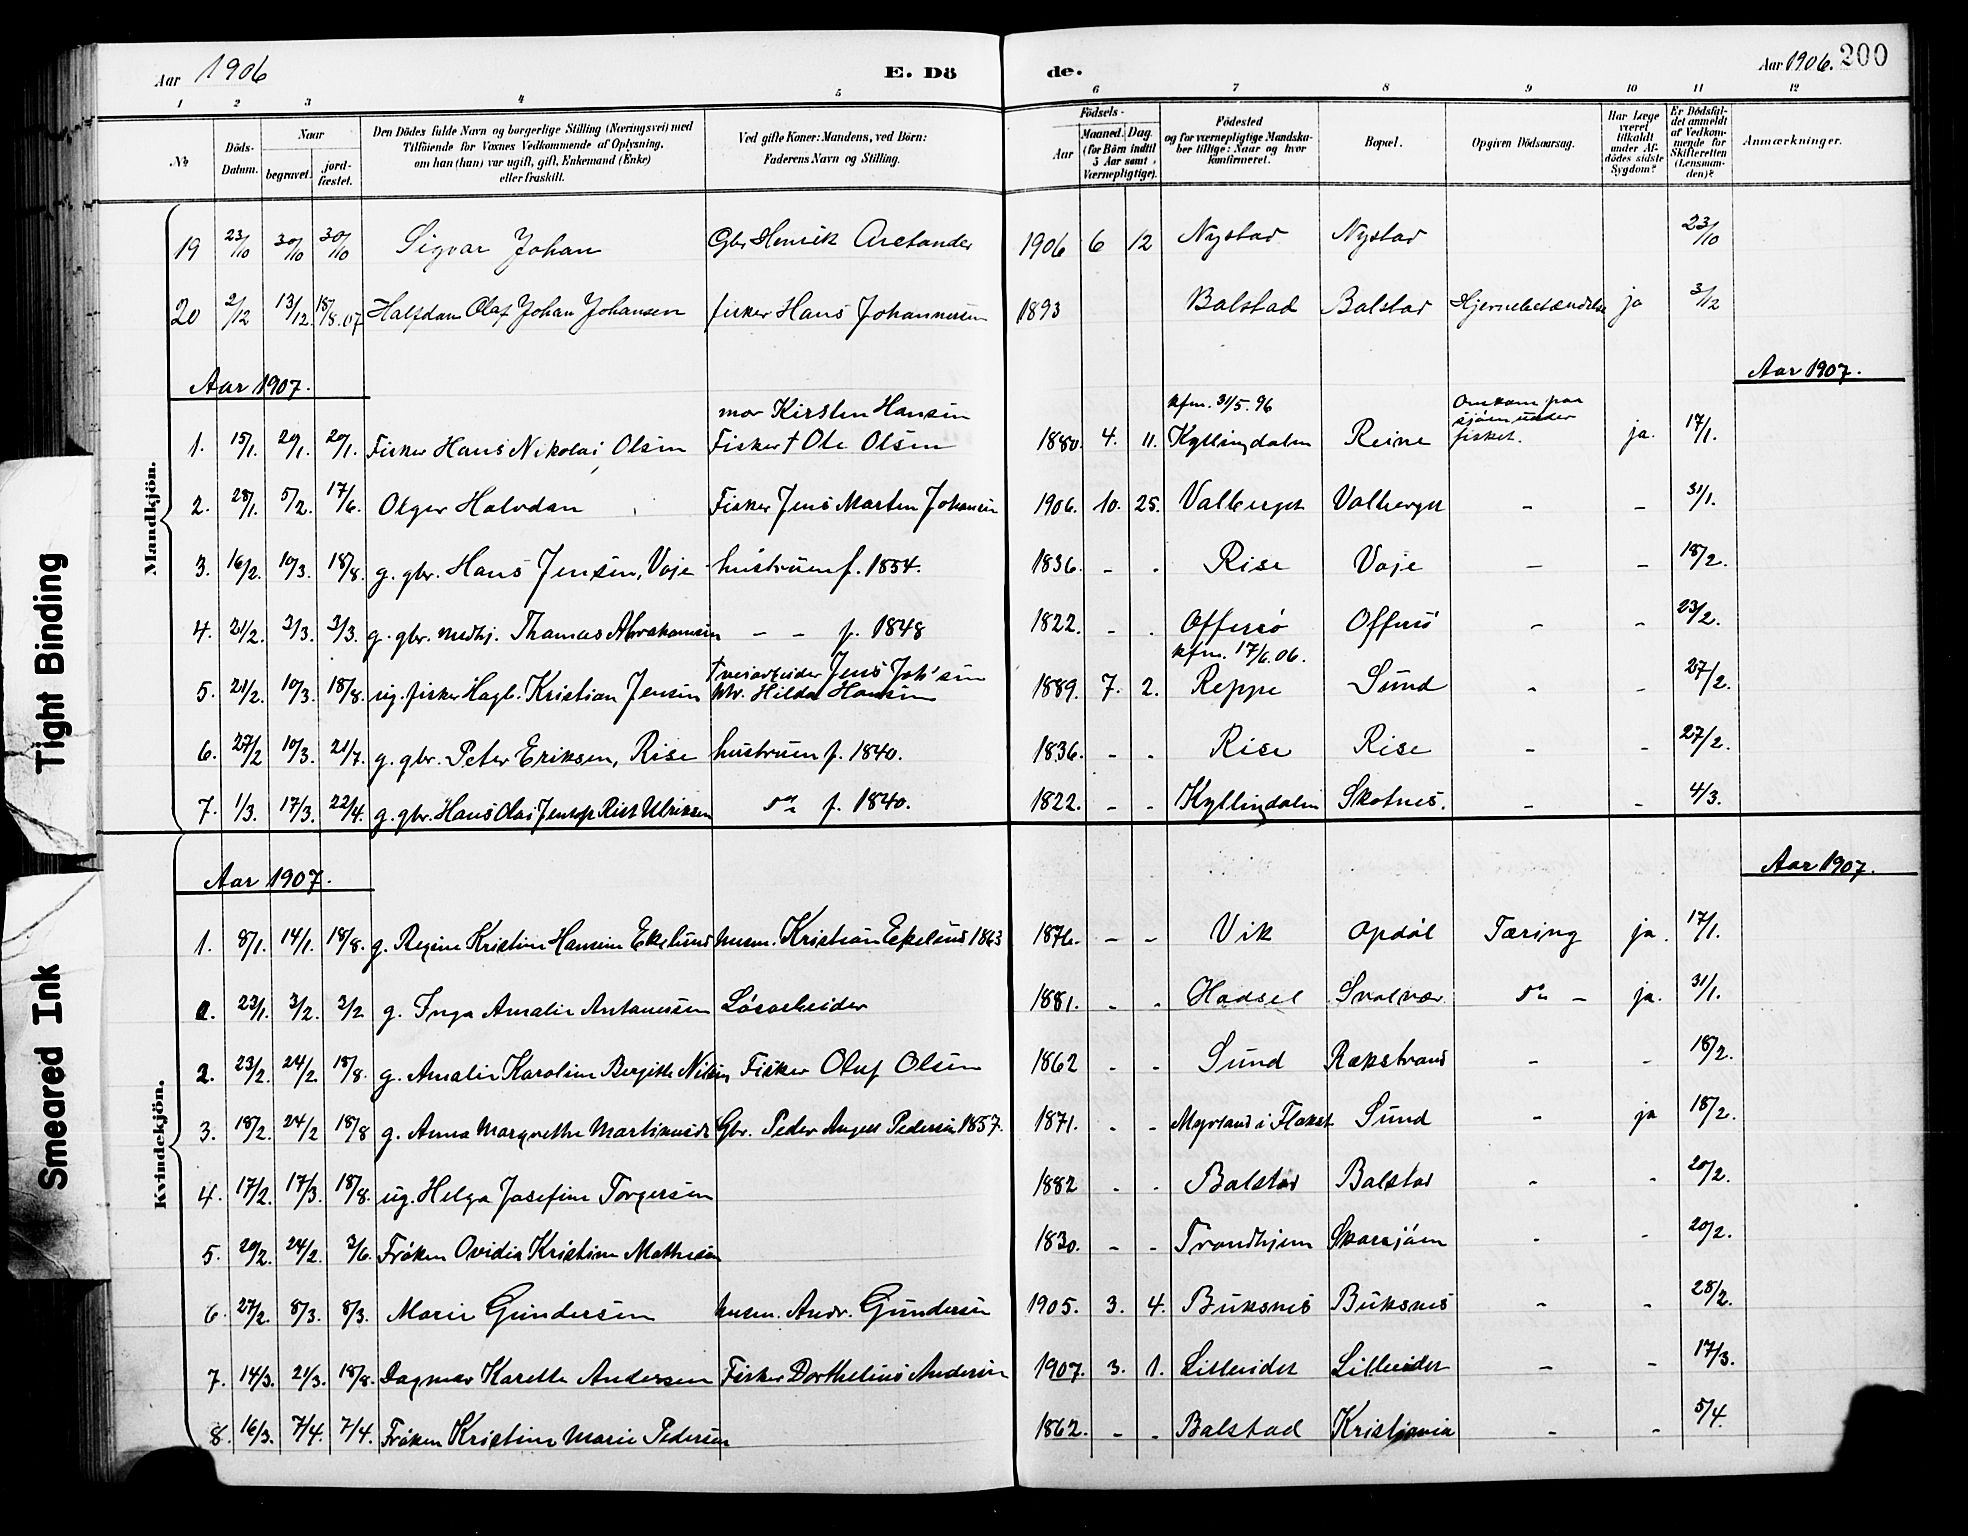 Aar 1906
E. Dö
de.
Aar 1906. 200
1 2 3 4 5 6 7 8 9 10 11 12
No
Döds-Datum.
Naar
begravet.
jord-fæstet.
Den Dödes fulde Navn og borgerlige Stilling (Næringsvei) med
Tilföiende for Voxnes Vedkommende af Oplysning,
om han (hun) var ugift, gift, Enkemand (Enke)
eller fraskilt.
Ved gifte Koner: Mandens, ved Börn:
Faderens Navn og Stilling.
Födsels-
Aar
Maaned. Dag.
(for Börn indtil
5 Aar samt
Værnepligtige).
Födested
og for værnepligtige Mandska-
ber tillige: Naar og hvor
konfirmeret.
Bopæl.
Opgiven Dödsaarsag.
Har Læge
været
tilkaldt
under Af-
dödes sidste
Sygdom?
Er Dödsfal-
det anmeldt
af Vedkom-
mende for
Skifteretten
(Lensman-
den)?
Anmærkninger.
Mandkjön.
19 23/10 30/10 30/10 Sigvar Johan Gbr Henrik Arctander 1906 6 12 Nystad Nystad 23/10
20 2/12 13/12 18/8.07 Halfdan Olaf Johan Johansen fisker Hans Johannesen 1893 Balstad Balstad Hjernebetændelse ja 3/12
Aar 1907.
Aar 1907.
mor Kirsten Hansen kfm. 31/5.96 Omkom paa
sjöen under
1. 15/1. 20/1. 20/1. Fisker Hans Nikolai Olsen Fisker † Ole Olsen 1880. 4. 11. Kyllingdalen Reine fisket. ja. 17/1.
2. 28/1. 5/2. 17/6. Olger Halvdan Fisker Jens Marten Johansen 1906. 10. 25. Valberget Valberget - - 31/1.
3. 16/2. 10/3. 18/8. g. gbr. Hans Jensen, Voje hustruen f. 1854. 1836. - - Rise Voje - - 18/2.
4. 21/2. 3/3. 3/3. g. gbr. medhj. Thomas Abrahamsen - - f. 1848 1822. - - Offersö Offersö - - 23/2.
† veiarbeider Jens Joh'sen kfm. 17/6.06.
5. 21/2. 10/3. 18/8. ug. fisker Hagb. Kristian Jensen Hilda Hansen 1889. 7. 2. Reppe Sund - - 27/2.
6. 27/2 10/3. 21/7. g. gbr. Peter Eriksen, Rise hustruen f. 1840. 1836. - - Rise Rise - - 27/2.
7. 1/3. 17/3. 22/4. g. gbr. Hans Olai Jentoft Rist Ulriksen do f. 1840. 1822. - - Kyllingdalen Skotnes. - - 4/3.
Kvindekjön.
Aar 1907.
Aar 1907.
1. 8/1. 14/1. 18/8. g. Regine Kristine Hansen Ekelund husm. Kristian Ekelund 1863 1876. - - Vik Opdöl Tæring ja. 17/1.
23/1. 3/2. 3/2 g. Inga Amalie Antonessen Lösarbeider 1881. - - Hadsel Svolvær do - ja. 31/1.
2. 23/2. 24/2. 18/8. g. Amalie Karoline Bergitte Nilsen Fisker Oluf Olsen 1862 - - Sund Rækstrand - - 18/2.
3. 18/2. 24/2 18/8 g. Anna Margrethe Gbr. Peder Angell Pedersen 1857. 1871. - - Myrland i Flakst Sund - ja 18/2.
4. 17/2. 17/3. 18/8. ug. Helga Josefine Torgersen 1882 - - Balstad Balstad - - 20/2.
5. 20/2. 24/2. 3/6. Fröken Ovidia Kristine Mathisen 1830. - - Trondhjem - - 20/2.
6. 27/2. 8/3. 8/3. Marie Gundersen husm. Andr. Gundersen 1905. 3. 4. Buksnes Buksnes - - 28/2.
7. 14/3. 21/3. 18/8. Dagmar Karelle Andersen Fisker Dorthelius Andersen 1907. 3. 1. Lilleeidet Lilleeidet - - 17/3.
8. 16/3. 7/4. 7/4. Fröken Kristine Marie Pedersen 1862. - - Balstad Kristiania - - 5/4.
Tight Binding
Smeared Ink